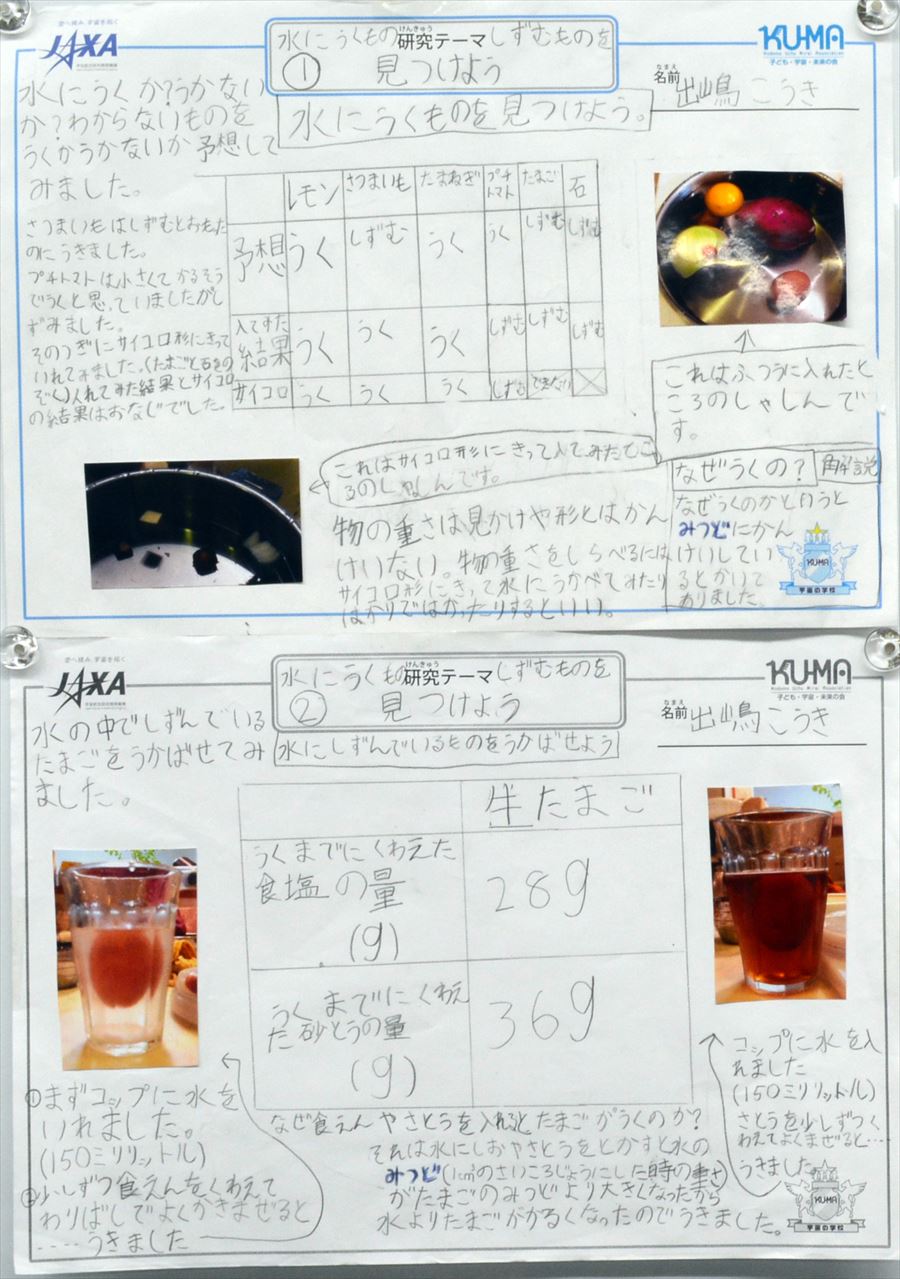 空へ挑み、宇宙を拓く
JAXA
水にうくもの
けんきゅう
研究テーマ
しずむものを
① 見つけよう
KU-MA
子ども・宇宙・未来の会
なまえ
名前 出嶋こうき
水にうくか?うかない
か?わからないものを
うくかうかないか予想して
みました。
水にうくものを見つけよう。
さつまいもはしずむとおもった
のにうきました。
プチトマトは小さくてかるそう
でうくと思っていましたがし
ずみました。
そのつぎにサイコロ形にきって
いれてみました。(たまごと石をの
ぞく)入れてみた結果とサイコロ
の結果はおなじでした。
レモン さつまいも たまねぎ プチトマト たまご 石
予想 うく しずむ うく うく しずむ しずむ
入れてみた結果 うく うく うく しずむ しずむ しずむ
サイコロ うく うく うく しずむ できない
これはふつうに入れたと
ころのしゃしんで
す。
これはサイコロ形にきって入れてみたとこ
ろのしゃしんです。
物の重さは見かけや形とはかん
けいない。物の重さをしらべるには
サイコロ形にきって水にうかべてみたり
はかりではかったりするといい。
なぜうくの? 解説
なぜうくのかと言うと
みつどにかん
けいしてい
るとかいて
ありました。
KU-MA
宇宙の学校
空へ挑み、宇宙を拓く
JAXA
水にうくもの
けんきゅう
研究テーマ
しずむものを
② 見つけよう
KU-MA
子ども・宇宙・未来の会
なまえ
名前 出嶋こうき
水の中でしずんでいる
たまごをうかばせてみ
ました。
水にしずんでいるものをうかばせよう
生たまご
うくまでにくわえた
食塩の量
(g)
28g
うくまでにくわえ
た砂とうの量
(g)
36g
①まずコップに水を
いれました。
(150ミリリットル)
②少しずつ食えんをくわえて
わりばしでよくかきまぜると
‥‥うきました
コップに水を入
れました
(150ミリリットル)
さとうを少しずつく
わえてよくまぜると‥‥
うきました
なぜ食えんやさとうを入れるとたまごがうくのか?
それは水にしおやさとうをとかすと水の
みつど(1cm³のさいころじょうにした時の重さ)
がたまごのみつどより大きくなったから
水よりたまごがかるくなったのでうきました。
KU-MA
宇宙の学校